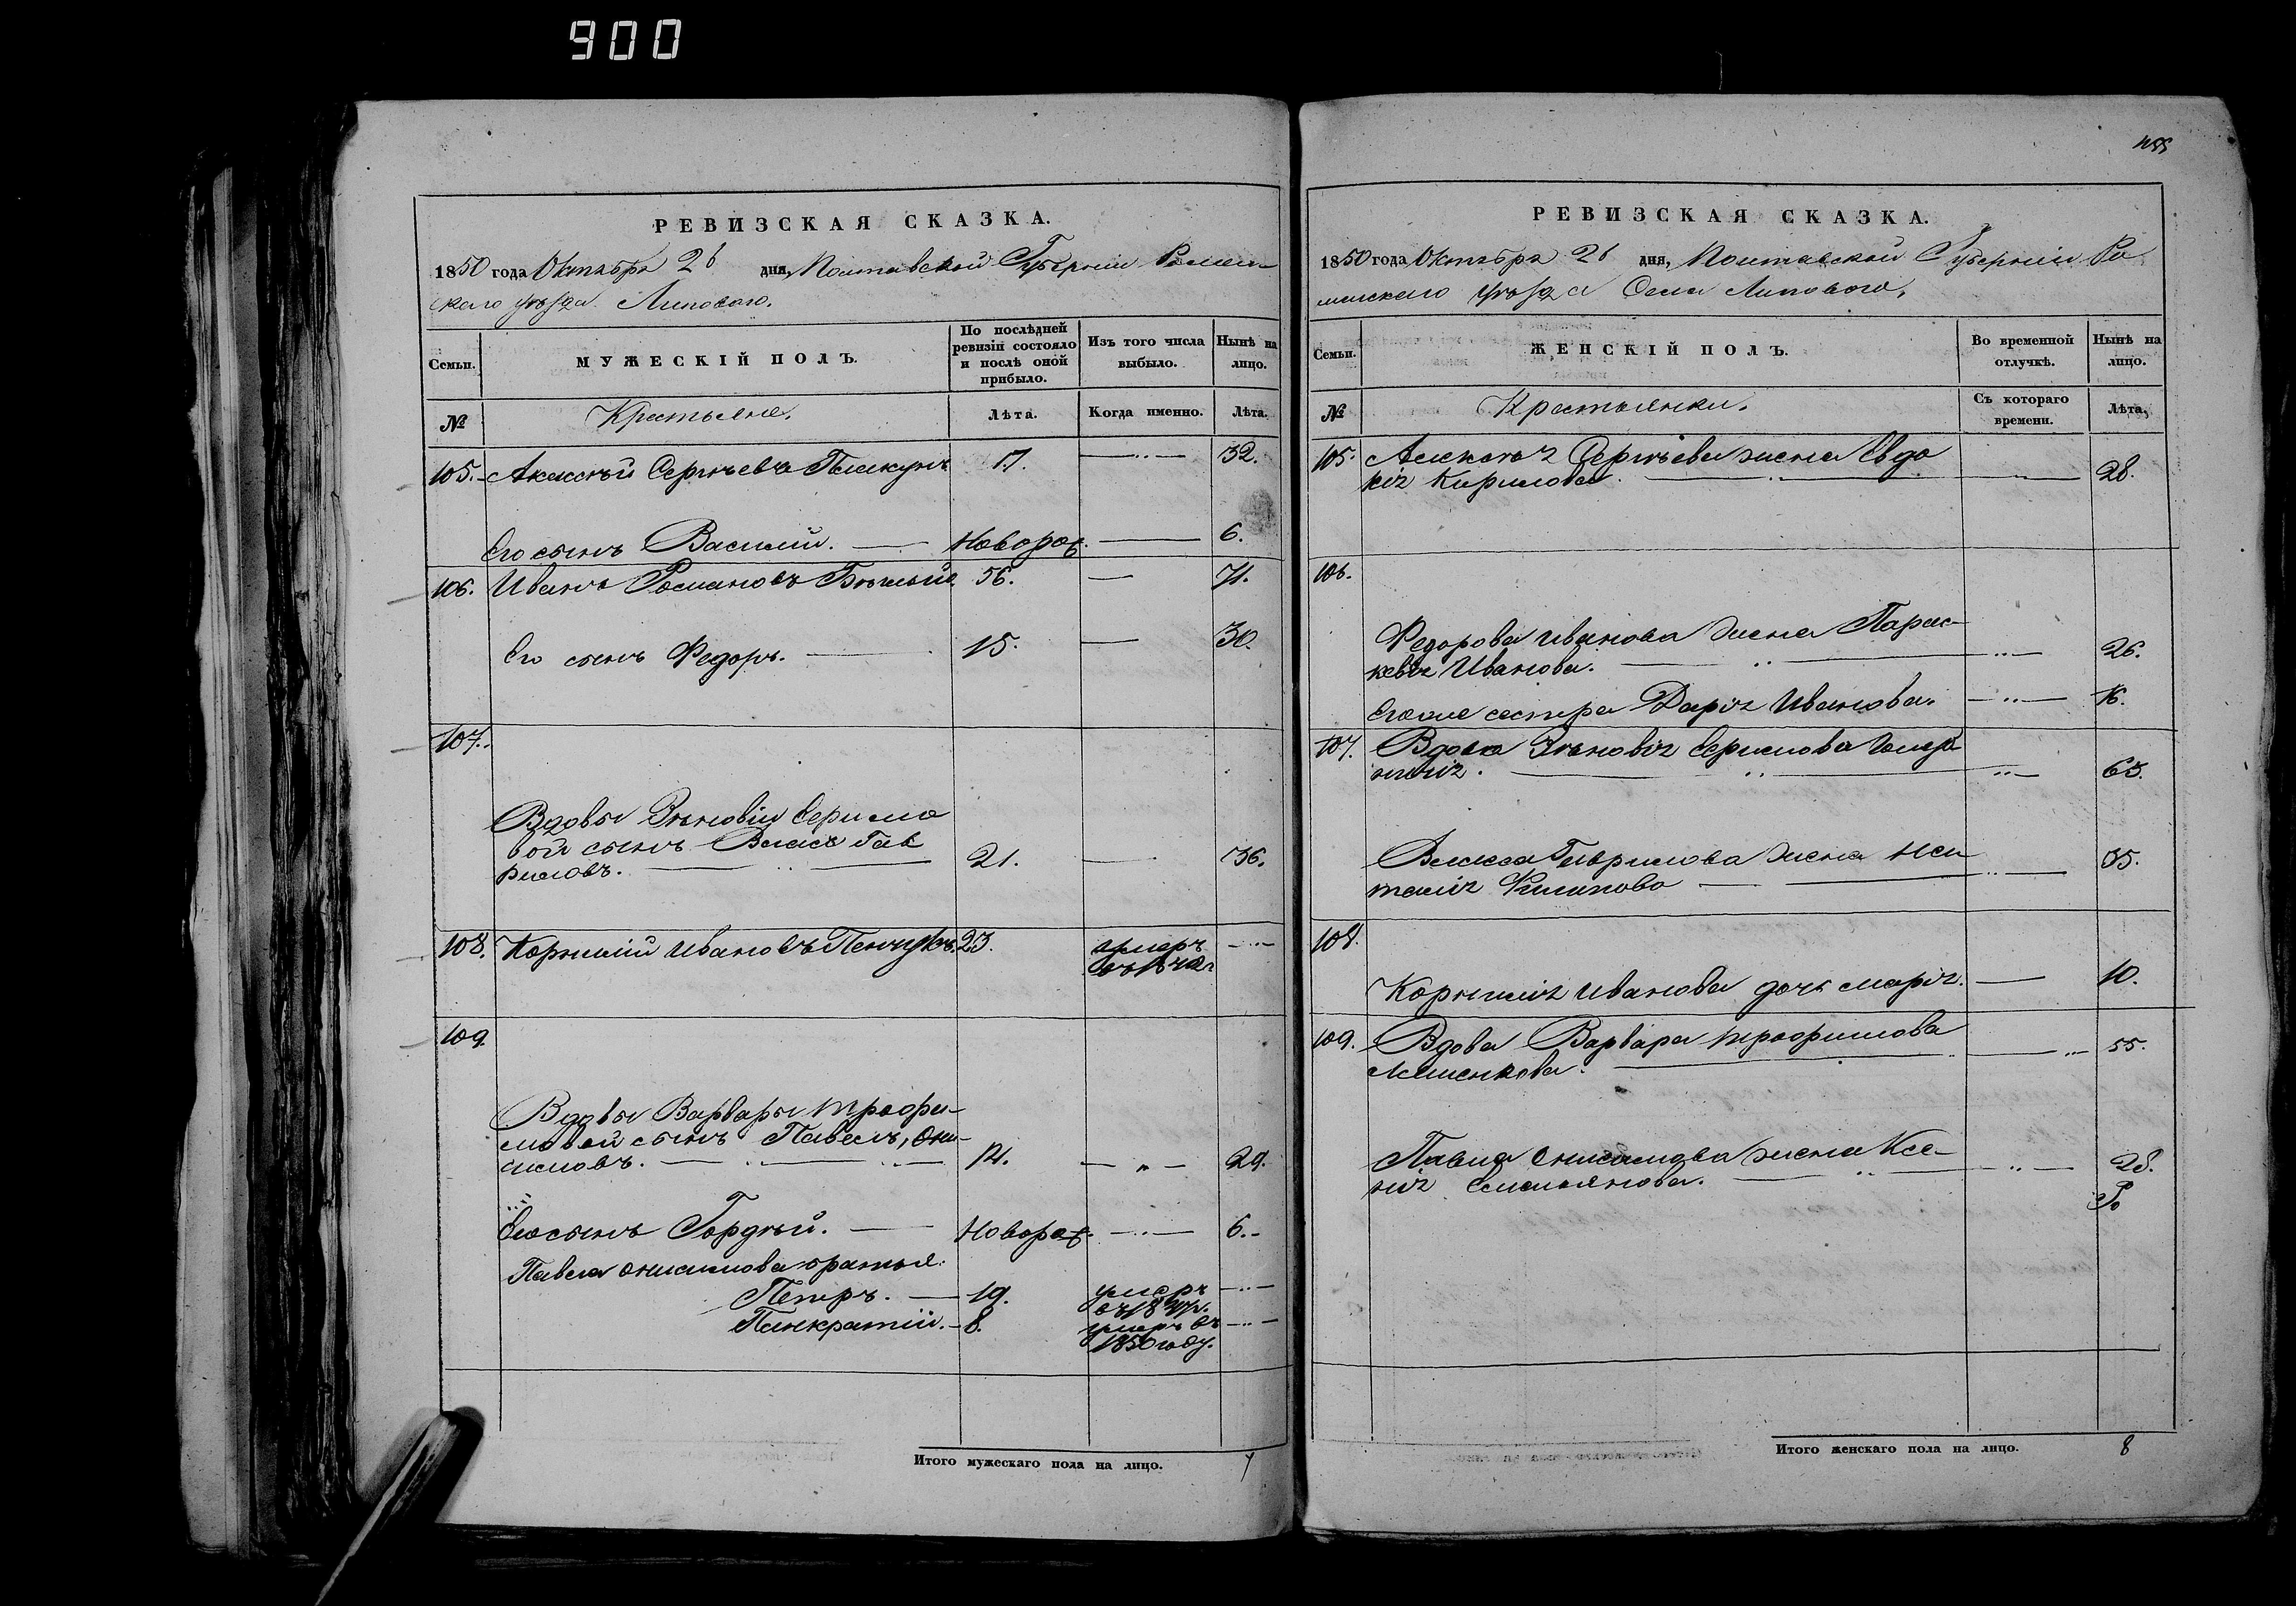 900
РЕВИЗСКАЯ СКАЗКА.
1850 года Октября 26 дня, Полтавской Губернии Ромен-
скаго уѣзда Липоваго.
Семьи.
МУЖЕСКІЙ ПОЛЪ.
По послѣдней ревизіи состояло и послѣ оной прибыло.
Изъ того числа выбыло.
Нынѣ на лицо.
№
Крестьяне.
Лѣта.
Когда именно.
Лѣта.
105. Алексѣй Сергѣевъ 17. 32.
Его сынъ Василий. Новорож. 6.
106. Иванъ Романовъ 56. 71.
Его сынъ Федоръ. 15. 30.
107.
Вдовы Зѣновіи
вой сынъ Власъ Гав
риловъ. 21. 36.
108. Корнилій Ивановъ 23. умеръ
109.
Вдовы Варвары Трофи-
мовой сынъ Павелъ, Они-
симовъ. 14. 29.
Его сынъ Гордѣй. Новорож. 6.
Павла Онисимова братья.
Петръ. 19. умеръ
Панкратій. 8. умеръ въ
1850 году.
Итого мужескаго пола на лицо. 7
РЕВИЗСКАЯ СКАЗКА.
1850 года Октября 26 дня, Полтавской Губерніи Ро
менскаго уѣзда Села Липоваго,
Семьи.
ЖЕНСКІЙ ПОЛЪ.
Во временной отлучкѣ.
Нынѣ на лицо.
№
Крестьянки.
Съ котораго времени.
Лѣта,
105. Сергѣева жена Евдо
кія Кирилова. 28.
106.
Федорова Иванова жена Парас-
кевія Иванова. 26.
Его же сестра Дарія Иванова. 16.
107. Вдова Зѣновія 65.
Власа Гаврилова жена
Филипова 35.
108.
Корнилія Иванова дочь Марія. 10.
109. Вдова Варвара Трофимова 55.
Павла Онисимова жена Ксе-
нія Емельянова. 28.
Итого женскаго пола на лицо. 8